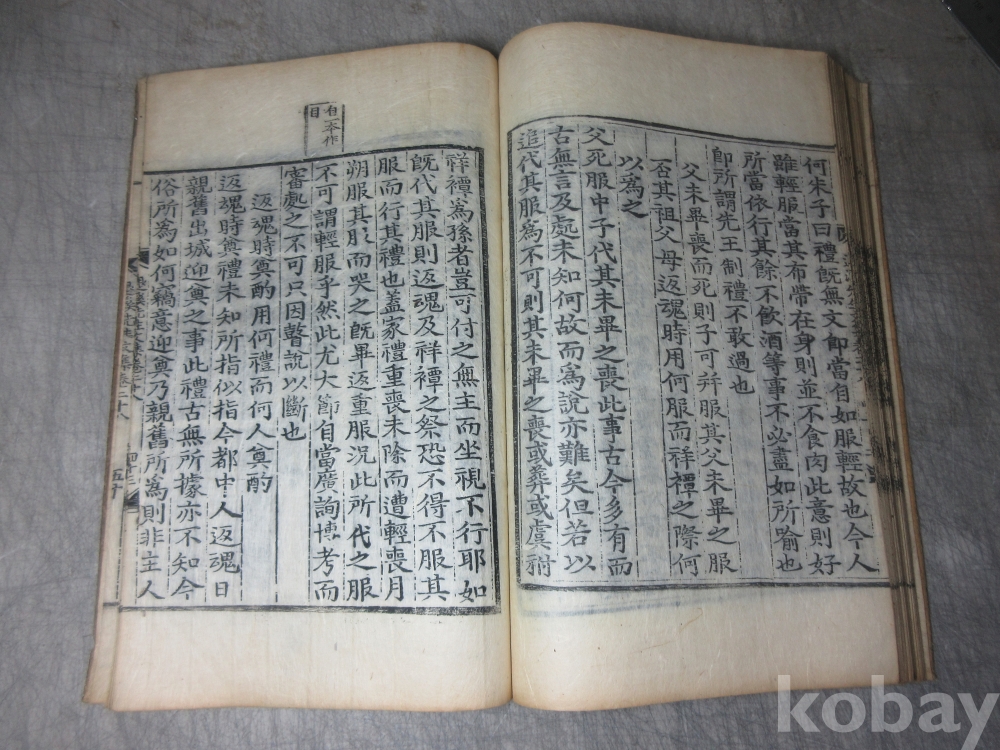 何朱子曰禮旣無文卽當自如服輕故也今人
雖輕服當其布帶在身則並不食肉此意則好
所當依行其餘不飮酒等事不必盡如所喩也
卽所謂先王制禮不敢過也
父未畢喪而死則子可幷服其父未畢之服
否其祖父母返魂時用何服而祥禫之際何
以爲之
父死服中子代其未畢之喪此事古今多有而
古無言及處未知何故而爲說亦難矣但若以
追代其服爲不可則其未畢之喪或葬或虞祔
自一本作
目
祥禫爲孫者豈可付之無主而坐視不行耶如
旣代其服則返魂及祥禫之祭恐不得不服其
服而行其禮也蓋家禮重喪未除而遭輕喪月
朔服其服而哭之旣畢返重服況此所代之服
不可謂輕服乎然此尤大節自當廣詢博考而
審處之不可只因瞽說以斷也
返魂時奠酌用何禮而何人奠酌
返魂時奠禮未知所指似指今都中人返魂日
親舊出城迎奠之事此禮古無所據亦不知今
俗所爲如何竊意迎奠乃親舊所爲則非主人
五十
kobay